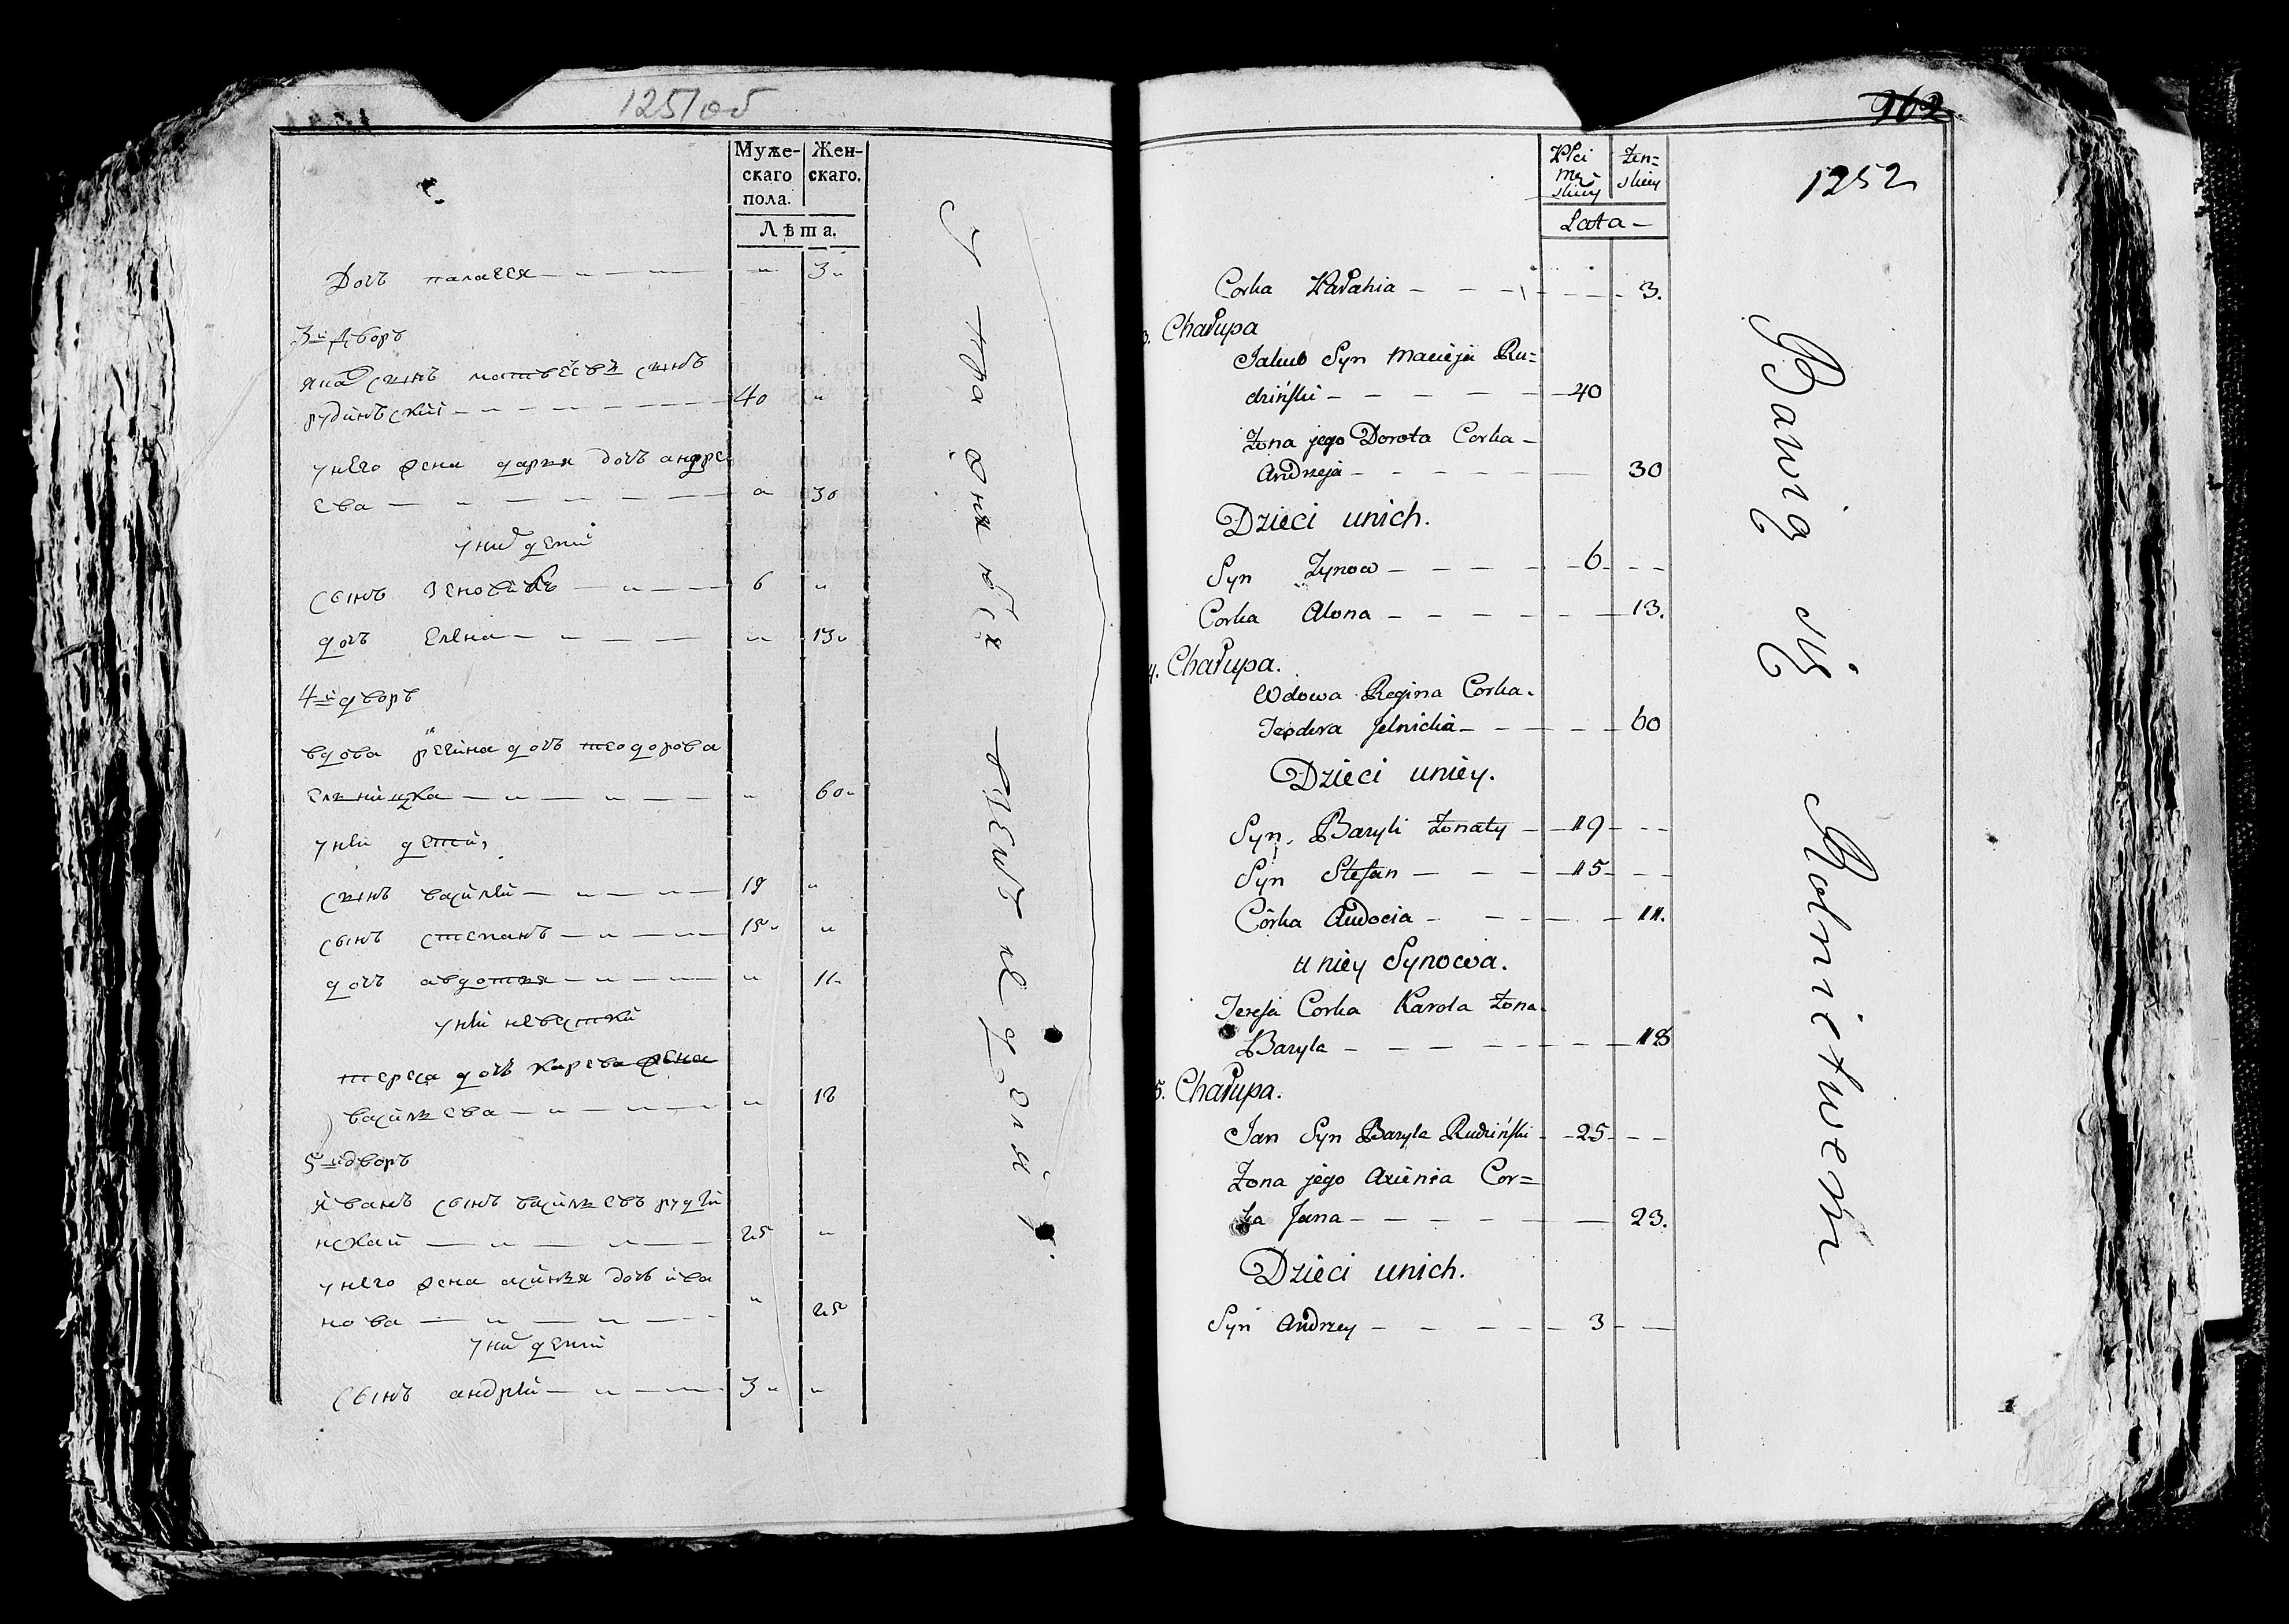 1251об
Муже-
скаго
пола.
Жен-
скаго.
Лѣта.
Дочъ палагея — " — — " — 3 "
3й дворъ
яковъ сынъ матвѣевъ сынъ
рудинъский — " — " — 40 "
унего жена дарья дочъ андре
ева — " — " — 30
уних дети
сынъ зеновий — " — 6 "
дочъ елена — " — " 13 "
4й дворъ
вдова регина дочъ теодорова
елницка — " — " — " 60 "
уней дети,
сынъ василей — " — " — 19 "
сынъ степанъ — " — " — 15 " "
дочъ авдотья — " — " — " 11 "
уней невестки
тереса дочъ карева жена
васильева — " — " — " 18
5й дворъ
иванъ сынъ васильевъ рудзи
нский — " — " — 25 "
унего жена ксинья дочъ ива
нова — " — " — " 25
уних дети
сынъ андрей — " — " — 3 " "
262
1252
Płci
Mę-
skiey
Żen=
skiey
Lata —
Corka Parahia — — — 3.
3. Chałupa
Jakub Syn Macieja Ru=
dziński — — — — 40
Żona jego Dorota Corka —
Andrzeja — — — — 30
Dzieci unich.
Syn Zynow — — — — 6. — —
Corka Alona — — — — 13.
4. Chałupa.
Wdowa Regina Corka.
Teodora Jelnicka — — — — 60
Dzieci uniey.
Syn. Bazyli Żonaty — 19 — —
Syn Stefan — — — 15 — —
Córka Audocia — — — — 11.
uniey Synowa.
Teresa Corka Karola Żona.
Bazyla — — — — — — 18
5. Chałupa.
Jan Syn Bazyla Rudziński — 25 — —
Żona jego Axienia Cor=
ka Jana — — — — — 23.
Dzieci unich.
Syn Andrzey — — — — 3 — —
Bawią się Rolnictwem